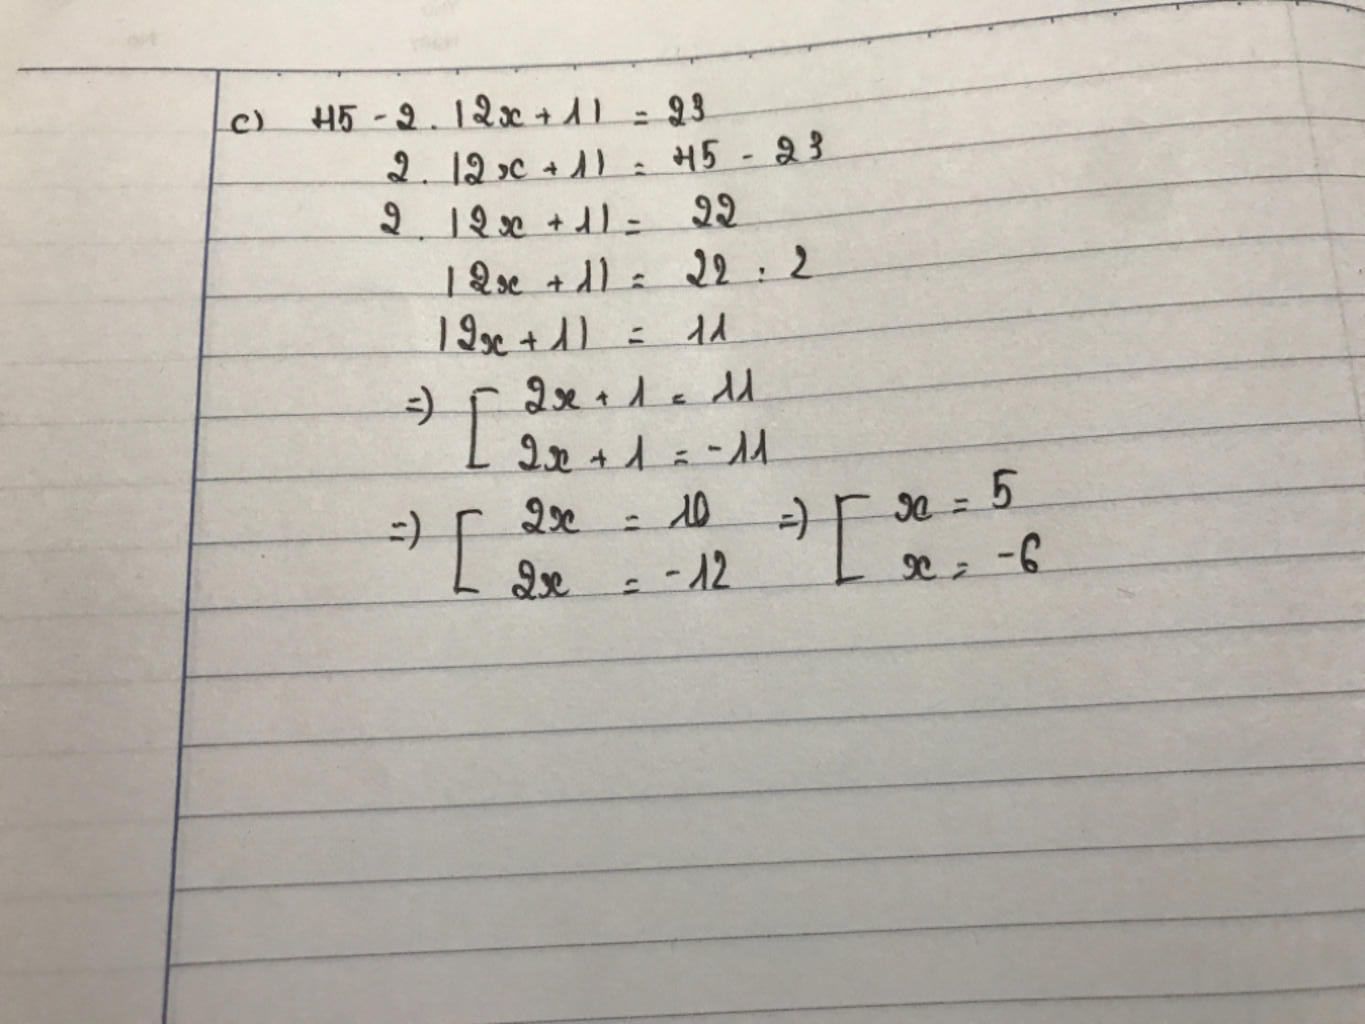 c) 45 - 2. |2x + 1| = 23
2. |2x + 1| = 45 - 23
2. |2x + 1| = 22
|2x + 1| = 22 : 2
|2x + 1| = 11
=) [ 2x + 1 = 11
2x + 1 = -11
=) [ 2x = 10 =) [ x = 5
2x = -12 x = -6